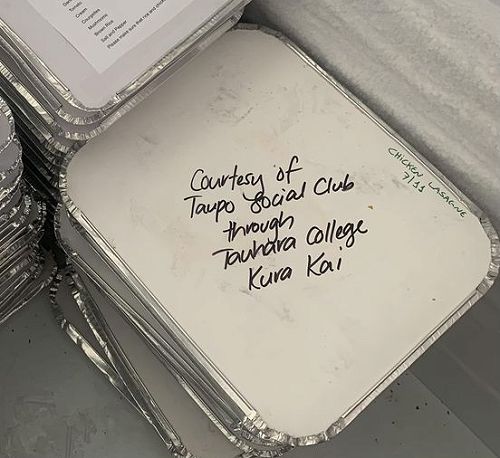 Tomato
Cream
Courgettes
Mushrooms
Brown Rice
Salt and Pepper
Please make sure that rice and
Courtesy of
Taupo Social Club
through
Tauhara College
Kura Kai
CHICKEN LASAGNE
7/11